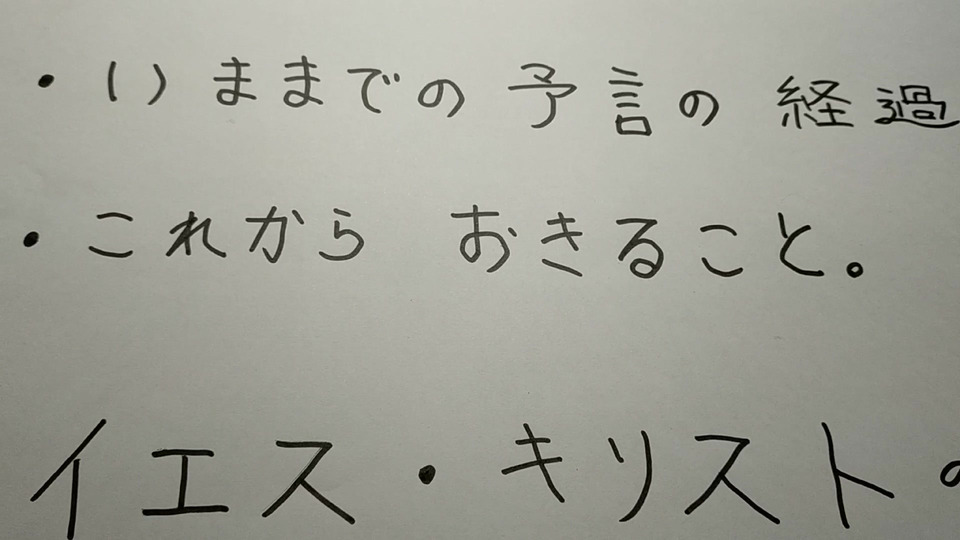 ・いままでの予言の経過
・これから おきること。
イエス・キリスト